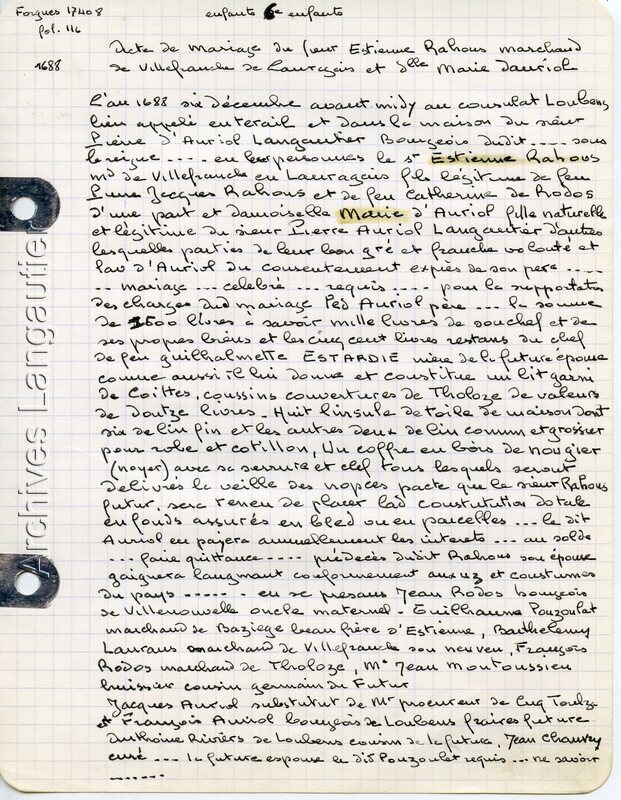 Forgues 17408
fol. 116
enfants 6e enfants
1688
Acte de Mariage du sieur Estienne Rahous marchand
de Villefranche de Lauragais et dlle Marie dauriol
L'an 1688 six décembre avant midy au consulat Loubens
lieu appelé enterail et dans la maison du sieur
Pierre d'Auriol Langautier Bourgeois dudit .... sous
le règne .... en les personnes le sr Estienne Rahous
md de Villefranche en Lauragais fils légitime de feu
Jacques Rahous et de feu Catherine de Rodos
d'une part et damoiselle Marie d'Auriol fille naturelle
et légitime du sieur Pierre Auriol Langautier d'autres
lesquelles parties de leur bon gré et franche volonté et
lad d'Auriol du consentement exprès de son père ....
.. mariage ... celebré ... requis .... pour la supportation
des charges dud mariage led Auriol père ... la somme
de 1500 livres à savoir mille livres de son chef et de
ses propres biens et les cinq cent livres restans du chef
de feu guilhalmette ESTARDIE mère de la future épouse
comme aussi il lui donne et constitue un lit garni
de Coittes, coussins couvertures de Tholoze de valeurs
de doutze livres - Huit linsuls de toile de maison dont
six de lin fin et les autres deux de lin comun et grossier
pour robe et cotillon, Un coffre en bois de nougier
(noyer) avec sa serrure et clef tous lesquels seront
delivrés la veille des nopces pacte que le sieur Rahous
futur, sera teneu de placer lad constitution dotale
en fonds assurés en bled ou en parcelles ... le dit
Auriol en pajera annuellement les interets ... au solde
... faire quittance .... prédecès dudit Rahous son épouse
gaignera langmant conformement aux uz et coustumes
du pays ..... - en se presans Jean Rodos bourgeois
de Villenouvelle oncle maternel - Guilhaume Pouzoulat
marchand de Baziege beau frère d'Estienne, Barthelemy
Laurans marchand de Villefranche son neuveu, François
Rodos marchand de Tholoze, Me Jean Montoussieu
huissier cousin germain du Futur
Jacques Auriol substitut de Mr procureur de Cuq Toulza
et François Auriol bourgeois de Loubens fraires future
Anthoine Rivière de Loubens cousin de la future, Jean Chauvry
curé ... la future espouse le dit Pouzoulat requis ... ne savoir
......
Archives Langautier